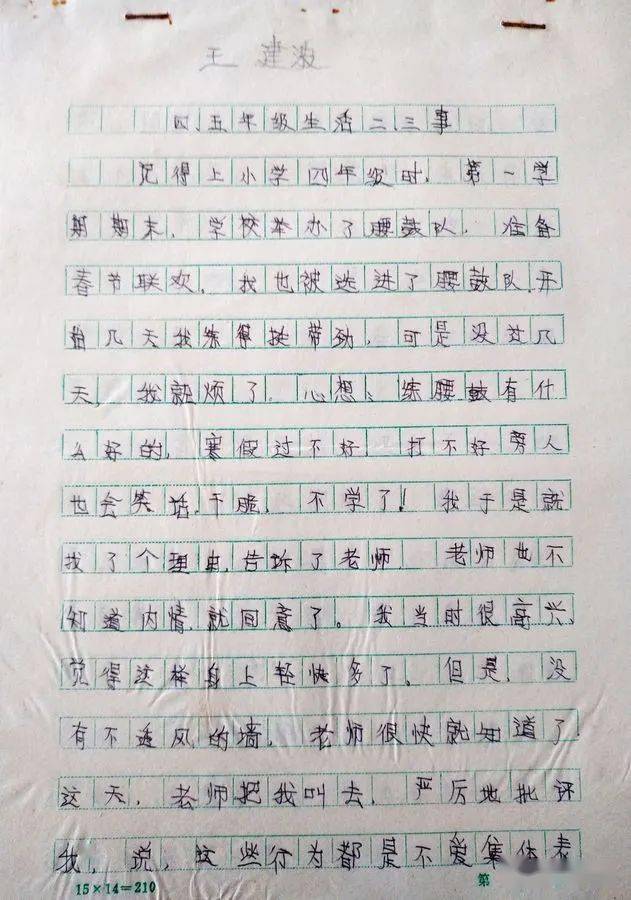 王建波
四、五年级生活二、三事
记得上小学四年级时，第一学
期期末，学校举办了腰鼓队，准备
春节联欢，我也被选进了腰鼓队，开
始几天我练得挺带劲，可是没过几
天，我就烦了，心想：练腰鼓有什
么好的，寒假过不好，打不好旁人
也会笑话，干脆，不学了！我于是就
找了个理由，告诉了老师，老师也不
知道内情，就同意了。我当时很高兴，
觉得这样身上轻快多了。但是，没
有不透风的墙，老师很快就知道了。
这天，老师把我叫去，严厉地批评
我，说，这些行为都是不爱集体表
15×14=210
第